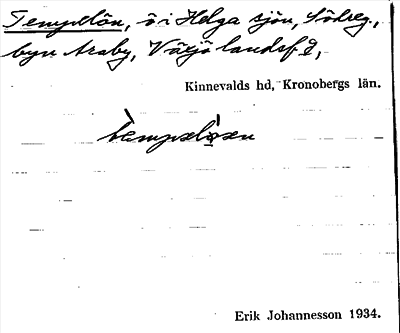 Tempelön, ö i Helga sjön, Södreg.,
byn Araby, Växjö landsf.,
Kinnevalds hd, Kronobergs län.
tèmpelö́sen
Erik Johannesson 1934.